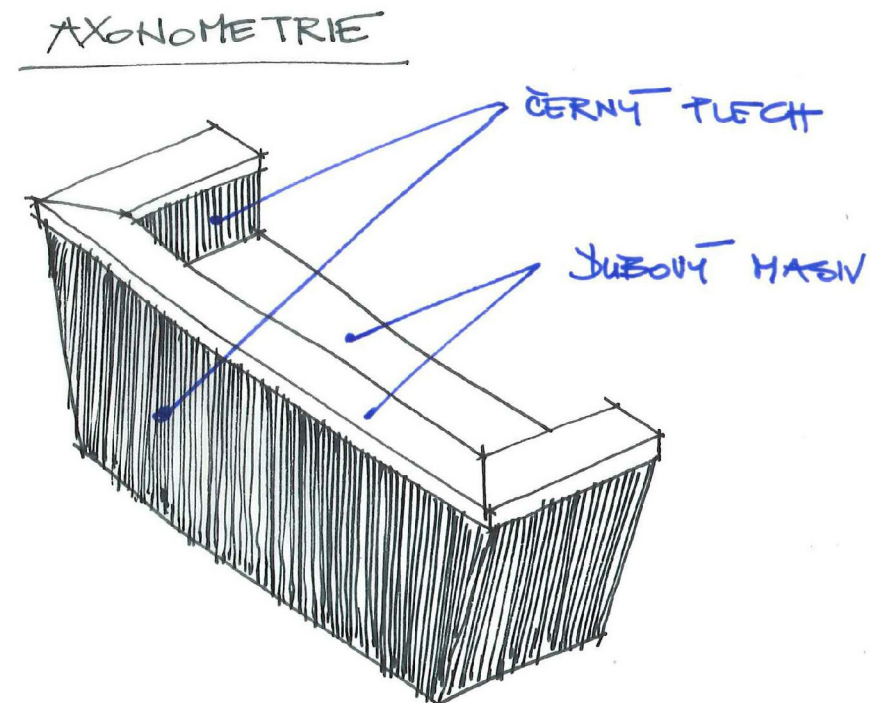 AXONOMETRIE
ČERNÝ PLECH
DUBOVÝ MASIV